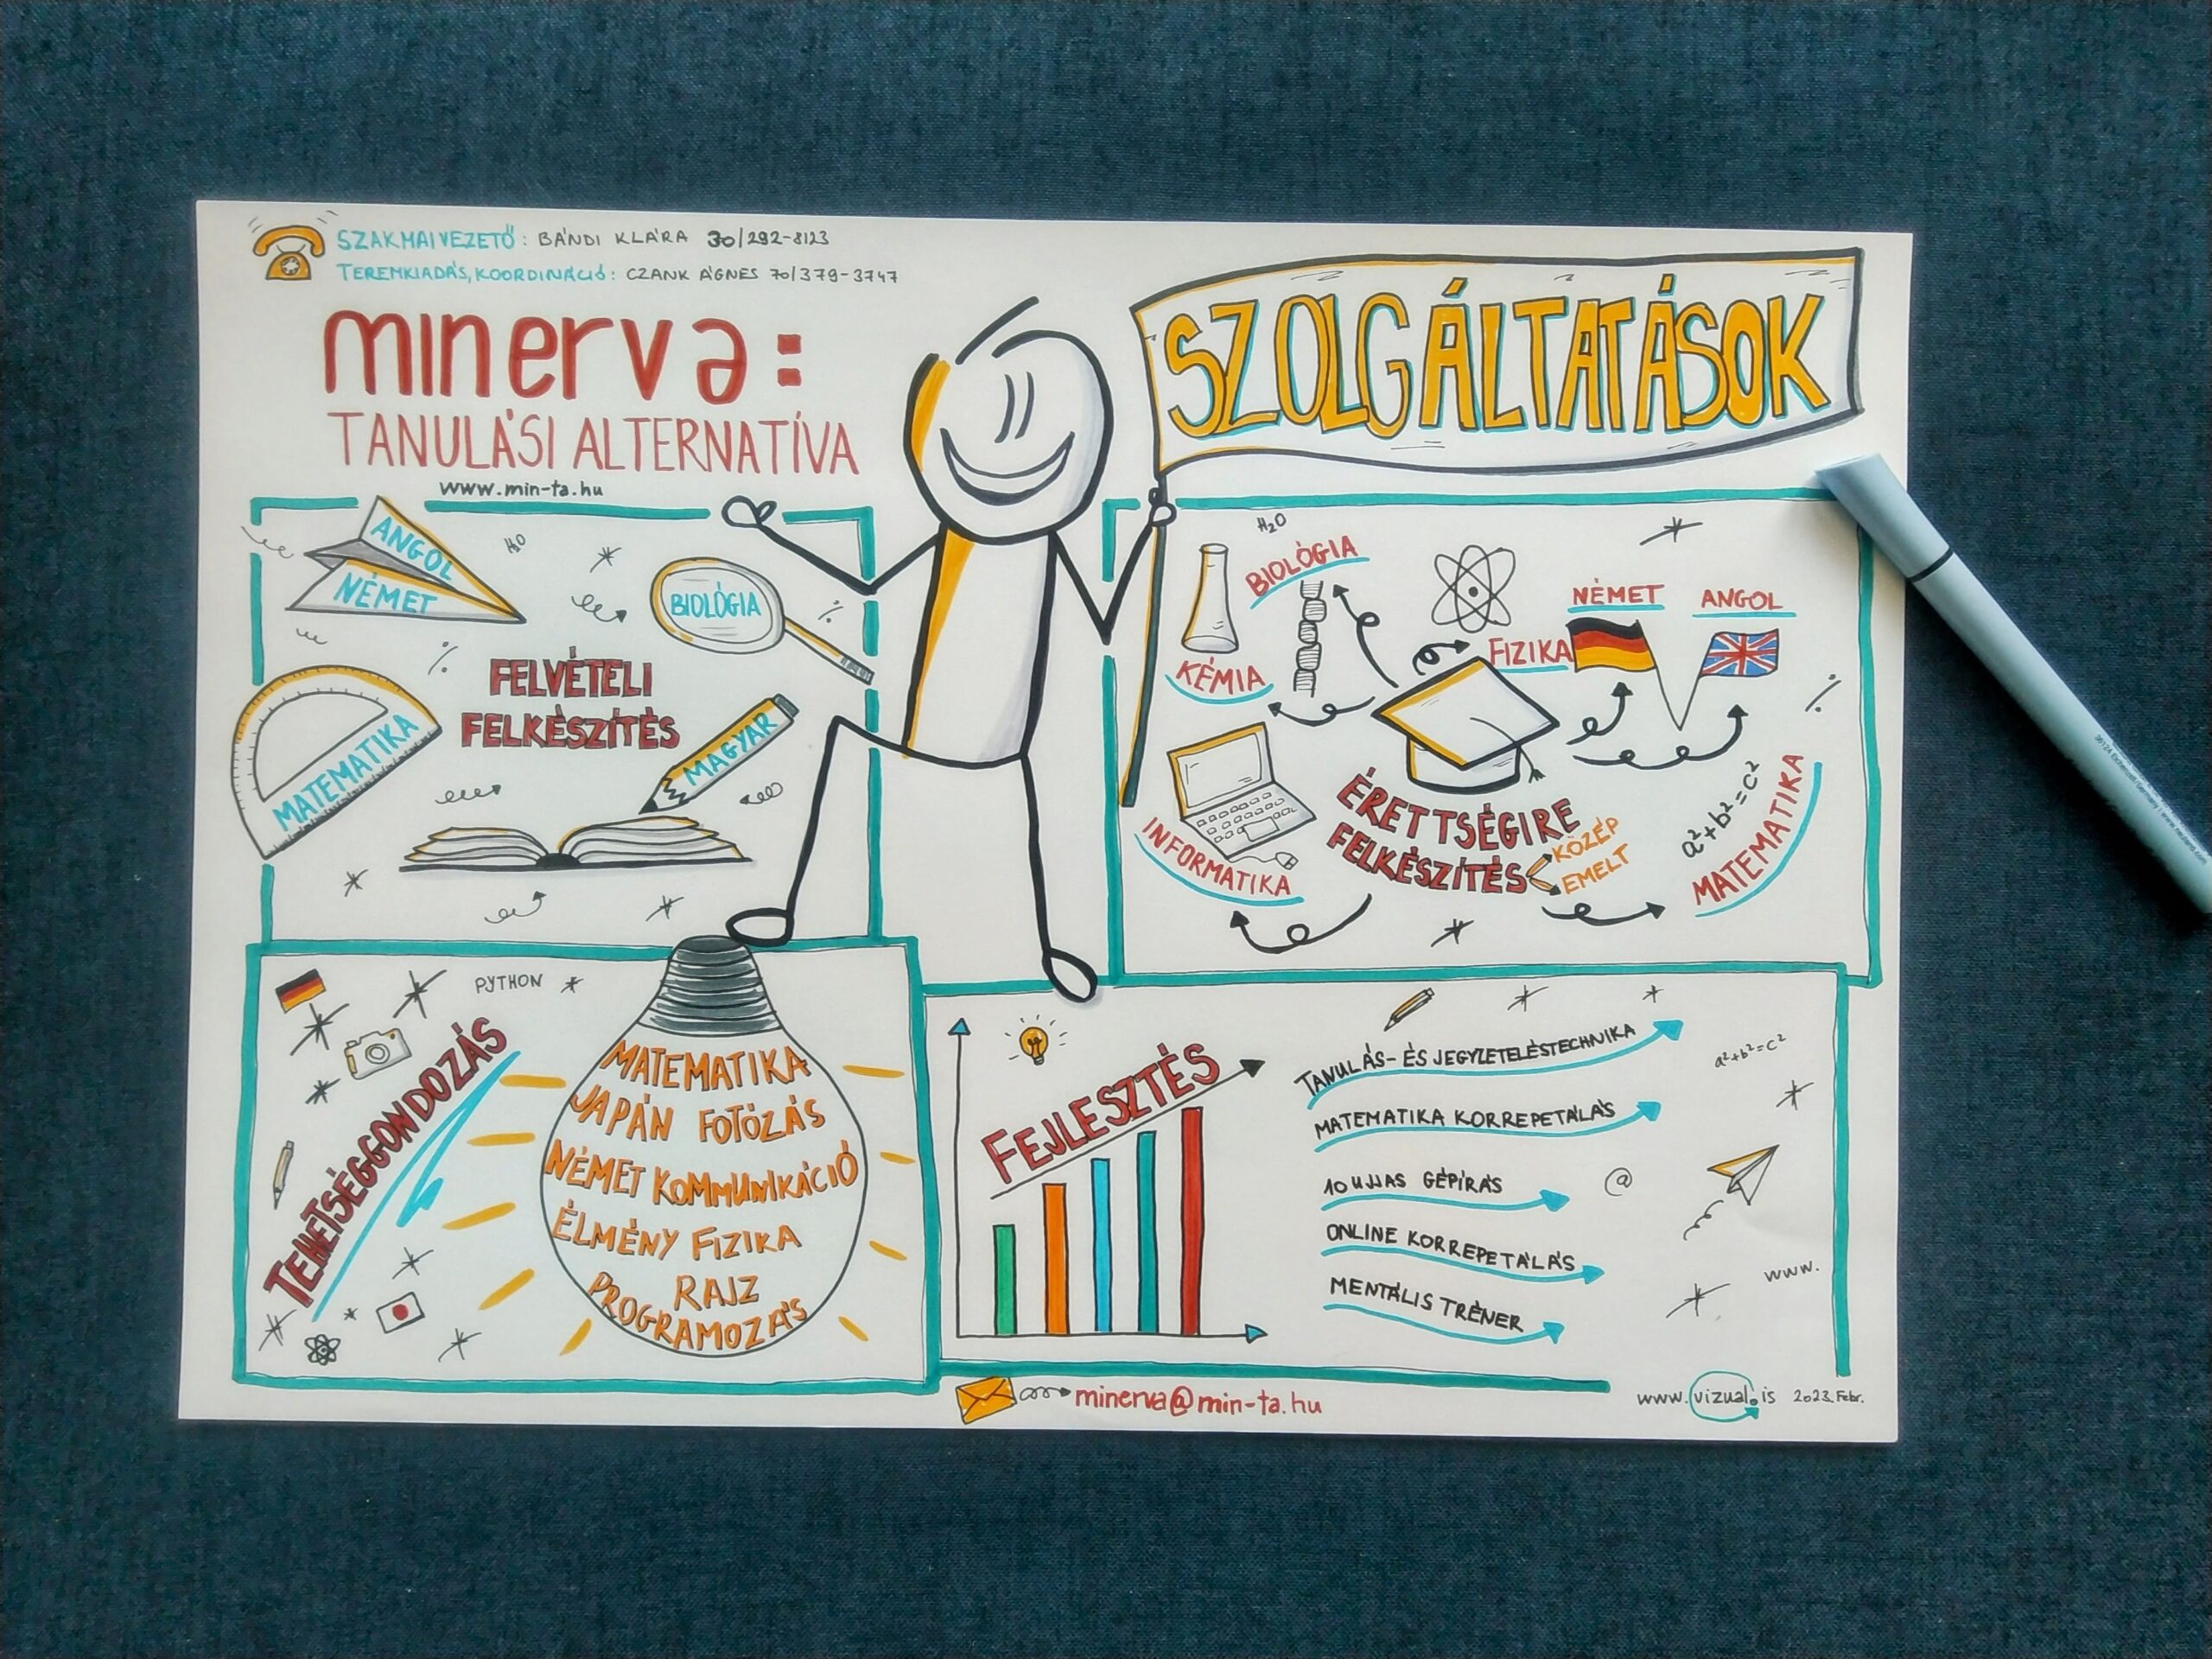 SZAKMAI VEZETŐ: BÁNDI KLÁRA 30/292-8123
TEREMKIADÁS, KOORDINÁCIÓ: CZANK ÁGNES 70/379-3747
minerva:
TANULÁSI ALTERNATÍVA
www.min-ta.hu
SZOLGÁLTATÁSOK
ANGOL
NÉMET
H2O
BIOLÓGIA
FELVÉTELI
FELKÉSZÍTÉS
MATEMATIKA
MAGYAR
H2O
BIOLÓGIA
KÉMIA
FIZIKA
NÉMET
ANGOL
INFORMATIKA
ÉRETTSÉGIRE
FELKÉSZÍTÉS
KÖZÉP
EMELT
a²+b²=c²
MATEMATIKA
PYTHON
TEHETSÉGGONDOZÁS
MATEMATIKA
JAPÁN FOTÓZÁS
NÉMET KOMMUNIKÁCIÓ
ÉLMÉNY FIZIKA
RAJZ
PROGRAMOZÁS
FEJLESZTÉS
TANULÁS- ÉS JEGYZETELÉSTECHNIKA
MATEMATIKA KORREPETÁLÁS
10 UJJAS GÉPÍRÁS
ONLINE KORREPETÁLÁS
MENTÁLIS TRÉNER
a²+b²=c²
@
www.
minerva@min-ta.hu
www.vizual.is 2023. Febr.